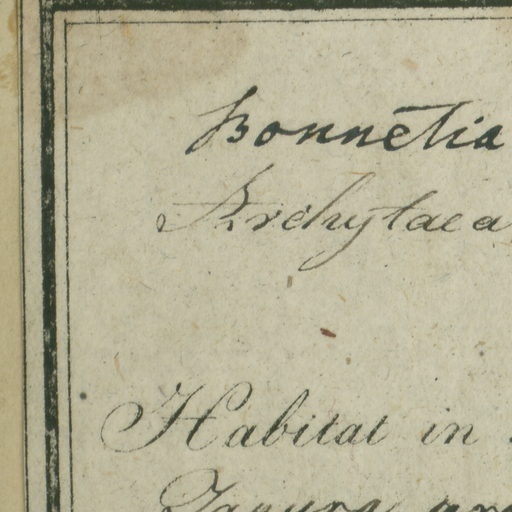 Bonnetia
Archytaea
Habitat in